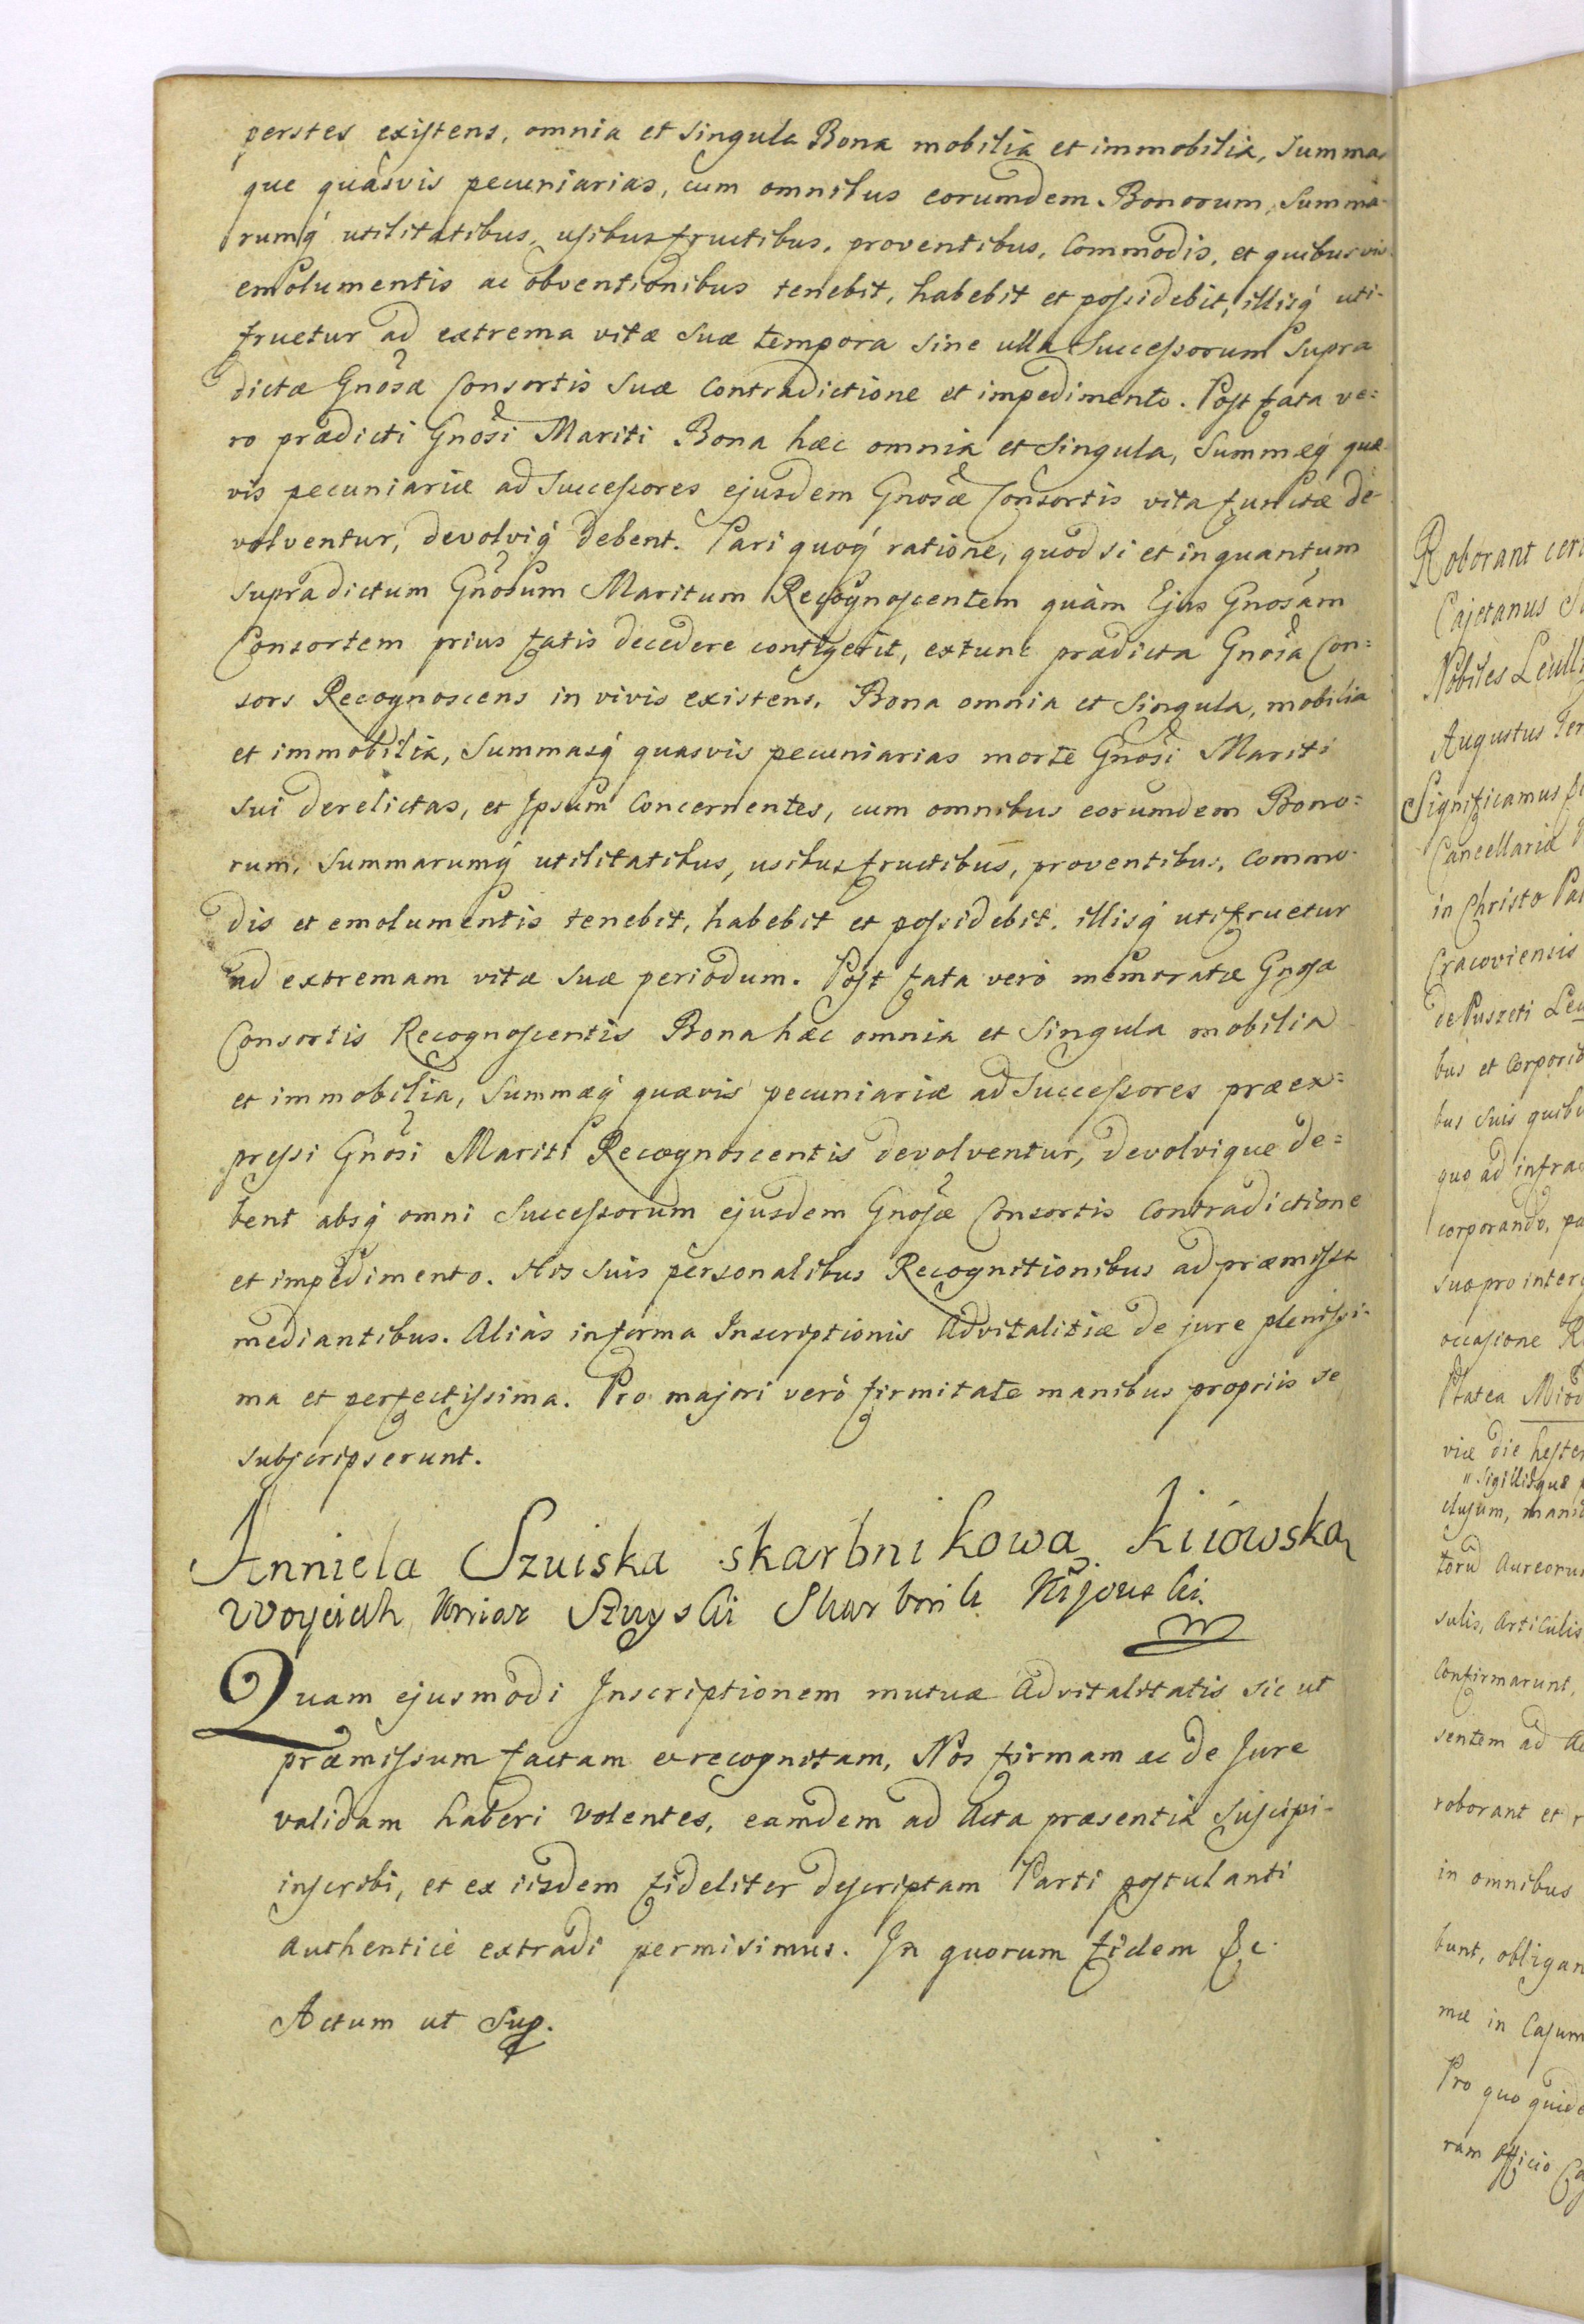 perstes existens, omnia et Singula Bona mobilia et immobilia, Summas
que quasvis pecuniarias, cum omnibus eorumdem Bonorum, Summa-
rumq́ utilitatibus, usibusfructibus, proventibus, Commodis, et quibusvis
emolumentis ac obventionibus tenebit, habebit et possidebit, illisq́ uti-
fruetur ad extrema vitæ suæ tempora sine ulla Successorum Supra
dictæ Gnosæ Consortis Suæ Contradictione et impedimento. Post fata ve=
ro prædicti Gnosi Mariti Bona hæc omnia et Singula, Summæq́ quæ-
vis pecuniariæ ad Successores ejusdem Gnosæ Consortis vita functæ de-
volventur, devolviq́ debent. Pari quoq́ ratione, quod si et inquantum
supradictum Gnosum Maritum Recognoscentem quàm Ejus Gnosam
Consortem prius fatis decedere contigerit, extunc prædicta Gnosa Con=
sors Recognoscens in vivis existens, Bona omnia et Singula, mobilia
et immobilia, Summasq́ quasvis pecuniarias morte Gnosi Mariti
sui derelictas, et Ipsum Concernentes, cum omnibus eorumdem Bono=
rum, Summarumq́ utilitatibus, usibusfructibus, proventibus, Commo-
dis et emolumentis tenebit, habebit et possidebit, illisq́ utifruetur
ad extremam vitæ suæ periodum. Post fata verò memoratæ Gnosæ
Consortis Recognoscentis Bona hæc omnia et Singula mobilia
et immobilia, Summæq́ quævis pecuniariæ ad Successores præex=
pressi Gnosi Mariti Recognoscentis devolventur, devolvique de=
bent absq́ omni Successorum ejusdem Gnosæ Consortis Contradictione
et impedimento. His suis personalibus Recognitionibus ad præmissa
mediantibus. Aliàs informa Inscriptionis Advitalitiæ de jure plenissi-
ma et perfectissima. Pro majori verò firmitate manibus propriis se
subscripserunt.
Anniela Szuiska skarbnikowa kiiowska
Woyciech Szuyski Skarbnik Kijowski
Quam ejusmodi Inscriptionem mutuæ Advitalitatis sic ut
præmissum factam et recognitam, Nos firmam ac de Jure
validam haberi Volentes, eamdem ad Acta præsentia Suscipi-
inscribi, et ex iisdem fideliter descriptam Parti postulanti
authenticè extradi permisimus. In quorum fidem &c.
Actum ut Sup.
Roborant
Cajetanus
Nobiles
Augustus
Significamus
Cancellariæ
in Christo
Cracoviensis
de Puszeti
bus et Corporib
bus suis quibu
quo ad infra
corporando,
suo pro inter
occasione
Platea Miod
viæ die hester
sigillisque
clusum,
toru Aureoru
sulis, articulis
Confirmarunt,
sentem ad
roborant et
in omnibus
bunt, obligan
mæ in Casum
Pro quo quide
ram officio